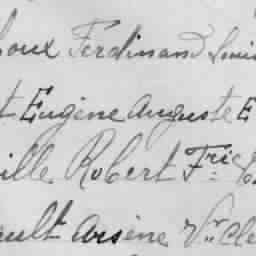 oux Ferdinand Louis
t Eugène Auguste E
ille Robert Fric
ault Arsène Vr Cle